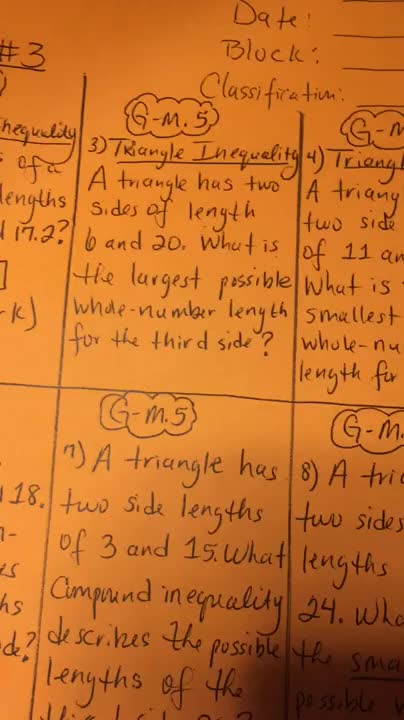 Date:
Block:
Classification:
#3
nequality
of a
lengths
17.2?
G-M.5
3) Triangle Inequality
A triangle has two
sides of length
6 and 20. What is
the largest possible
whole-number length
for the third side?
G-M
4) Triangl
A triang
two side
of 11 an
What is
smallest
whole-nu
length for
18.
G-M.5
7) A triangle has
two side lengths
of 3 and 15. What
Compound inequality
describes the possible
lengths of the
G-M.
8) A tri
two sides
lengths
24. Wha
the sma
possible